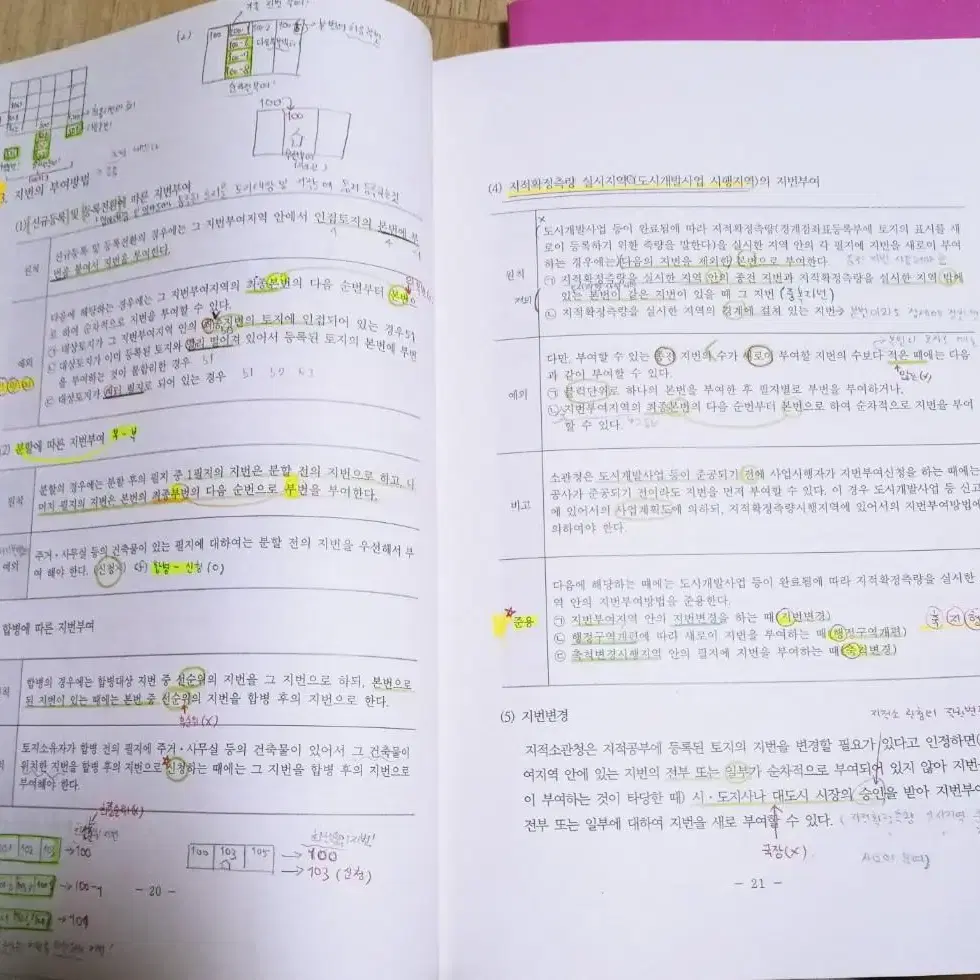 (2)
100 100-1 100-2
100-6
100-7
100-8
100
100
3. 지번의 부여방법
(1) 신규등록 및 등록전환에 따른 지번부여
원칙
신규등록 및 등록전환의 경우에는 그 지번부여지역 안에서 인접토지의 본번에 부
번을 붙여서 지번을 부여한다.
예외
다음에 해당하는 경우에는 그 지번부여지역의 최종본번의 다음 순번부터 본번으
로 하여 순차적으로 지번을 부여할 수 있다.
㉠ 대상토지가 그 지번부여지역 안의 최종지번의 토지에 인접되어 있는 경우
㉡ 대상토지가 이미 등록된 토지와 멀리 떨어져 있어서 등록된 토지의 본번에 부번
을 부여하는 것이 불합리한 경우
㉢ 대상토지가 여러 필지로 되어 있는 경우
(2) 분할에 따른 지번부여
원칙
분할의 경우에는 분할 후의 필지 중 1필지의 지번은 분할 전의 지번으로 하고, 나
머지 필지의 지번은 본번의 최종부번의 다음 순번으로 부번을 부여한다.
예외
주거・사무실 등의 건축물이 있는 필지에 대하여는 분할 전의 지번을 우선해서 부
여 해야 한다. 합병 - 신청 (O)
합병에 따른 지번부여
합병의 경우에는 합병대상 지번 중 선순위의 지번을 그 지번으로 하되, 본번으로
된 지번이 있는 때에는 본번 중 선순위의 지번을 합병 후의 지번으로 한다.
후순위(X)
토지소유자가 합병 전의 필지에 주거・사무실 등의 건축물이 있어서 그 건축물이
위치한 지번을 합병 후의 지번으로 신청하는 때에는 그 지번을 합병 후의 지번으로
부여해야 한다.
101 102 103 →100
100 103 105 → 100
→ 103 (신청)
- 20 -
(4) 지적확정측량 실시지역(도시개발사업 시행지역)의 지번부여
원칙
도시개발사업 등이 완료됨에 따라 지적확정측량(경계점좌표등록부에 토지의 표시를 새
로이 등록하기 위한 측량을 말한다)을 실시한 지역 안의 각 필지에 지번을 새로이 부여
하는 경우에는 다음의 지번을 제외한 본번으로 부여한다.
제외
㉠ 지적확정측량을 실시한 지역 안의 종전 지번과 지적확정측량을 실시한 지역 밖에
있는 본번이 같은 지번이 있을 때 그 지번 (중복지번)
㉡ 지적확정측량을 실시한 지역의 경계에 걸쳐 있는 지번
예외
다만, 부여할 수 있는 종전 지번의 수가 새로이 부여할 지번의 수보다 적은 때에는 다음
과 같이 부여할 수 있다.
많은(X)
㉠ 블럭단위로 하나의 본번을 부여한 후 필지별로 부번을 부여하거나,
㉡ 지번부여지역의 최종본번의 다음 순번부터 본번으로 하여 순차적으로 지번을 부여
할 수 있다.
비고
소관청은 도시개발사업 등이 준공되기 전에 사업시행자가 지번부여신청을 하는 때에는
공사가 준공되기 전이라도 지번을 먼저 부여할 수 있다. 이 경우 도시개발사업 등 신고
에 있어서의 사업계획도에 의하되, 지적확정측량시행지역에 있어서의 지번부여방법에
의하여야 한다.
준용
다음에 해당하는 때에는 도시개발사업 등이 완료됨에 따라 지적확정측량을 실시한
역 안의 지번부여방법을 준용한다.
㉠ 지번부여지역 안의 지번변경을 하는 때(지번변경)
㉡ 행정구역개편에 따라 새로이 지번을 부여하는 때(행정구역개편)
㉢ 축척변경시행지역 안의 필지에 지번을 부여하는 때(축척변경)
축 지 행
(5) 지번변경
지적소관청은 지적공부에 등록된 토지의 지번을 변경할 필요가 있다고 인정하면(
여지역 안에 있는 지번의 전부 또는 일부가 순차적으로 부여되어 있지 않아 지번
이 부여하는 것이 타당한 때) 시・도지사나 대도시 시장의 승인을 받아 지번부여
전부 또는 일부에 대하여 지번을 새로 부여할 수 있다.
국장(X)
- 21 -